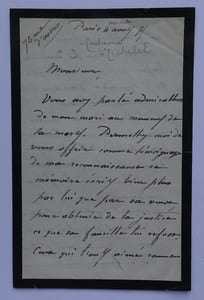 Paris 4 avril
Madame
Michelet
Monsieur
Vous avez parlé admirablement
de mon mari au moment de
la mort. Permettez-moi de
vous offrir comme témoignage
de ma reconnaissance ce
mémoire écrit bien plus
par lui que par sa veuve
pour obtenir de la justice
ce que sa famille lui refuse.
Ceux qui l'ont aimé comme